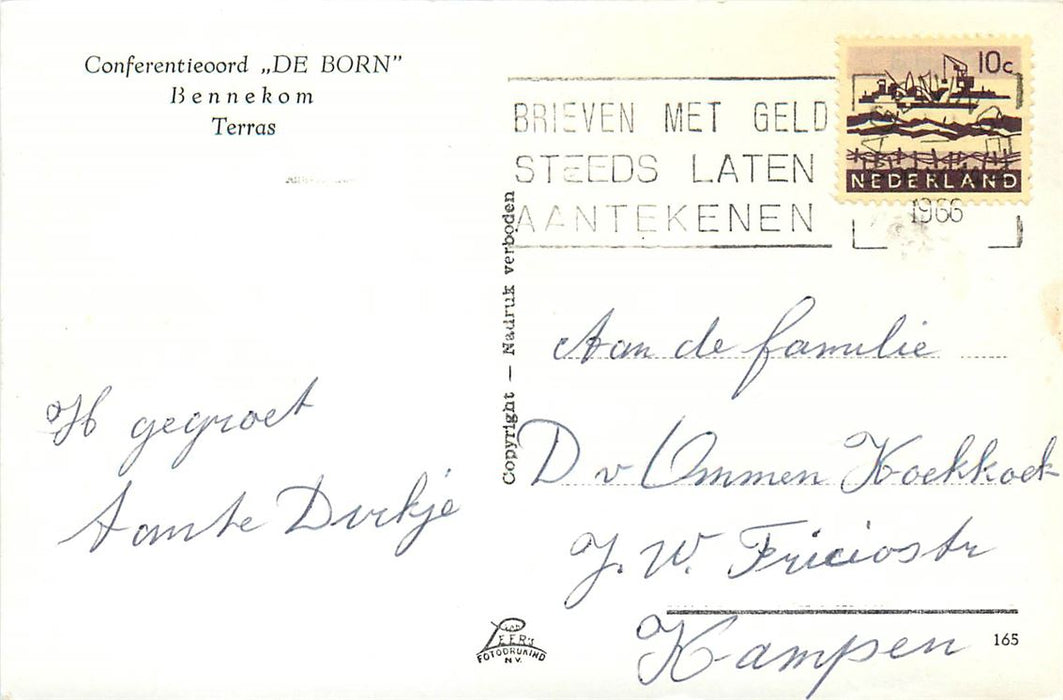 Conferentieoord „DE BORN”
Bennekom
Terras
BRIEVEN MET GELD
STEEDS LATEN
AANTEKENEN
10c
NEDERLAND
1966
Copyright — Nadruk verboden
H gegroet
tante Dirkje
Aan de familie
D v Ommen Koekkoek
J. W. Friciostr
Kampen
LEER's
FOTODRUKIND
N.V.
165